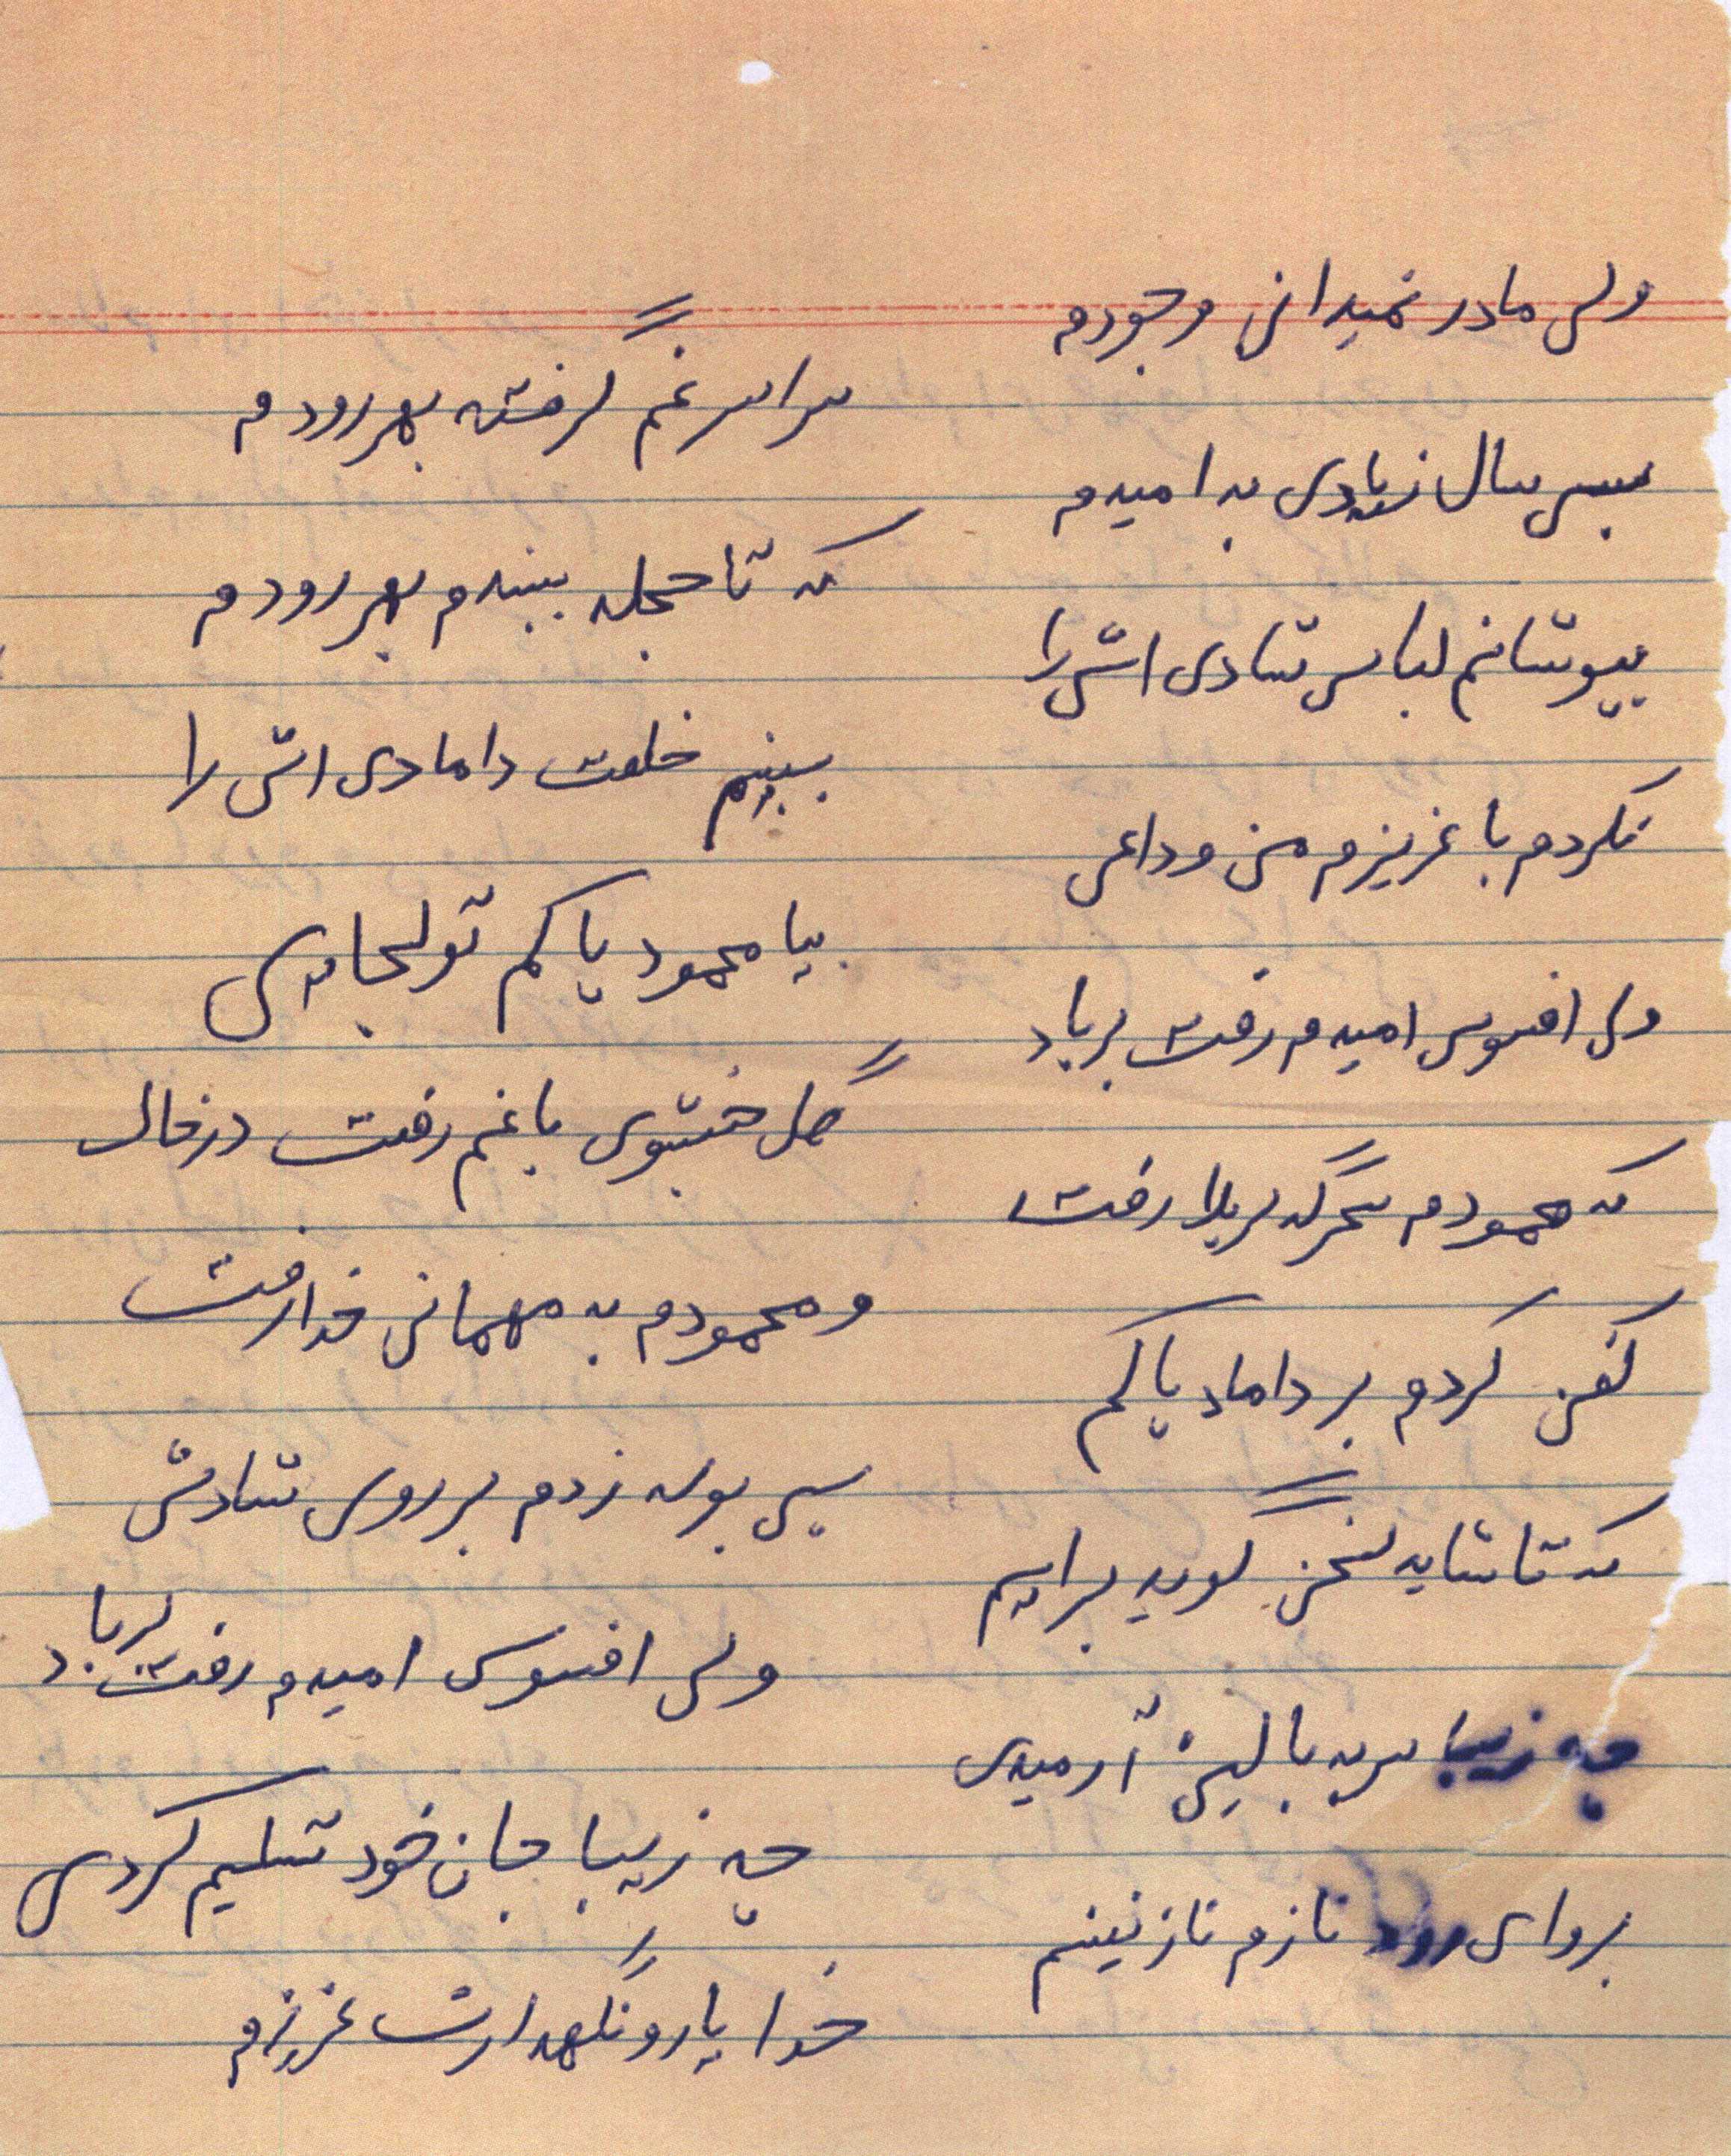 ولی مادر نمیدانی وجودم
سراسر غم گرفته بهر رودم
بسی سال زیادی به امیدم
که تا حجله ببندم بهر رودم
بپوشانم لباس شادی اش را
ببینم خلعت دامادی اش را
نکردم با عزیزم من وداعی
بیا محمود پاکم تو کجایی
ولی افسوس امیدم رفت برباد
گل خشبوی باغم رفت در خاک
که محمودم سحرگه کربلا رفت
و محمودم به مهمانی خدا رفت
کفن کردم بر داماد پاکم
بسی بوسه زدم بر روی شادش
که تا شاید سخن گوید برایم
ولی افسوس امیدم رفت برباد
چه زیبا سر به بالین آرمیدی
چه زیبا جان خود تسلیم کردی
بروای رود نازم نازنینم
خدا یارو نگهدارت عزیزم